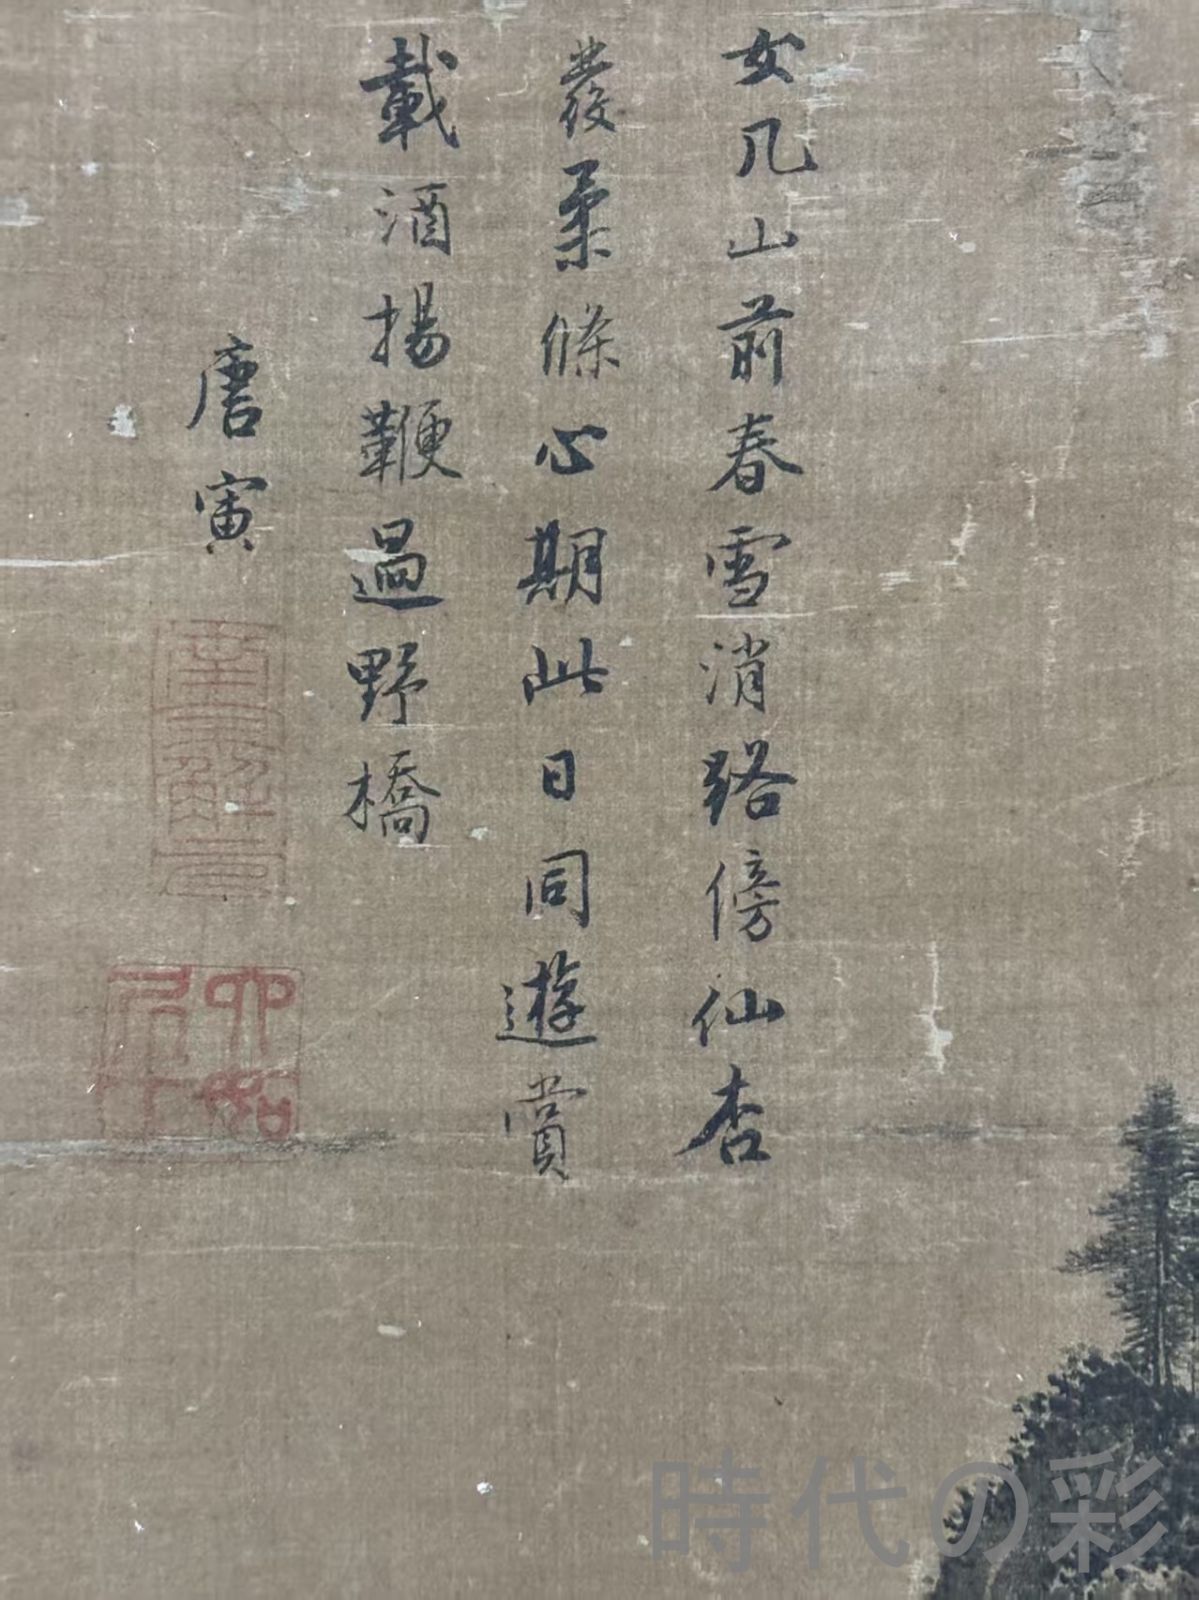 女几山前春雪消路傍仙杏
發柔條心期此日同遊賞
載酒揚鞭過野橋
唐寅
南京解元
六如居士
時代の彩